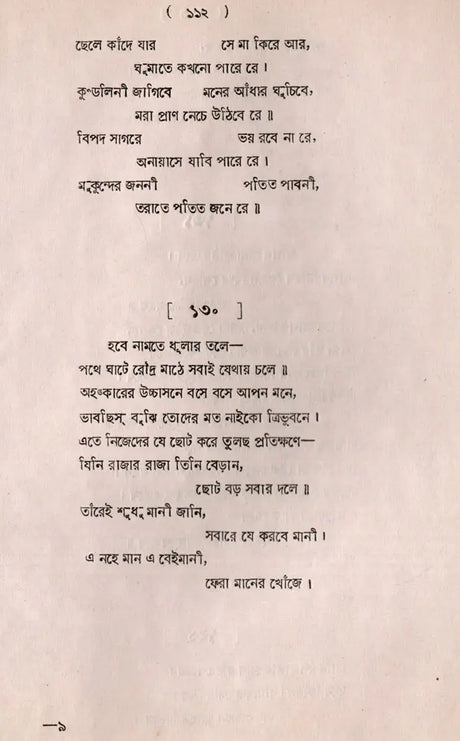 ( ১১২ )
ছেলে কাঁদে যার সে মা কিরে আর,
ঘুমাতে কখনো পারে রে ।
কুণ্ডলিনী জাগিবে মনের আঁধার ঘুচিবে,
মরা প্রাণ নেচে উঠিবে রে ॥
বিপদ সাগরে ভয় রবে না রে,
অনায়াসে যাবি পারে রে ।
মুকুন্দের জননী পতিত পাবনী,
তরাতে পতিত জনে রে ॥
[ ১৩০ ]
হবে নামতে ধুলার তলে—
পথে ঘাটে রৌদ্র মাঠে সবাই যেথায় চলে ॥
অহংকারের উচ্চাসনে বসে বসে আপন মনে,
ভাবছিস্ বুঝি তোদের মত নাইকো ত্রিভুবনে ।
এতে নিজেদের যে ছোট করে তুলছ প্রতিক্ষণে—
যিনি রাজার রাজা তিনি বেড়ান,
ছোট বড় সবার দলে ॥
তাঁরেই শুধু মানী জানি,
সবারে যে করবে মানী ।
এ নহে মান এ বেইমানী,
ফেরা মানের খোঁজে ।
—৯